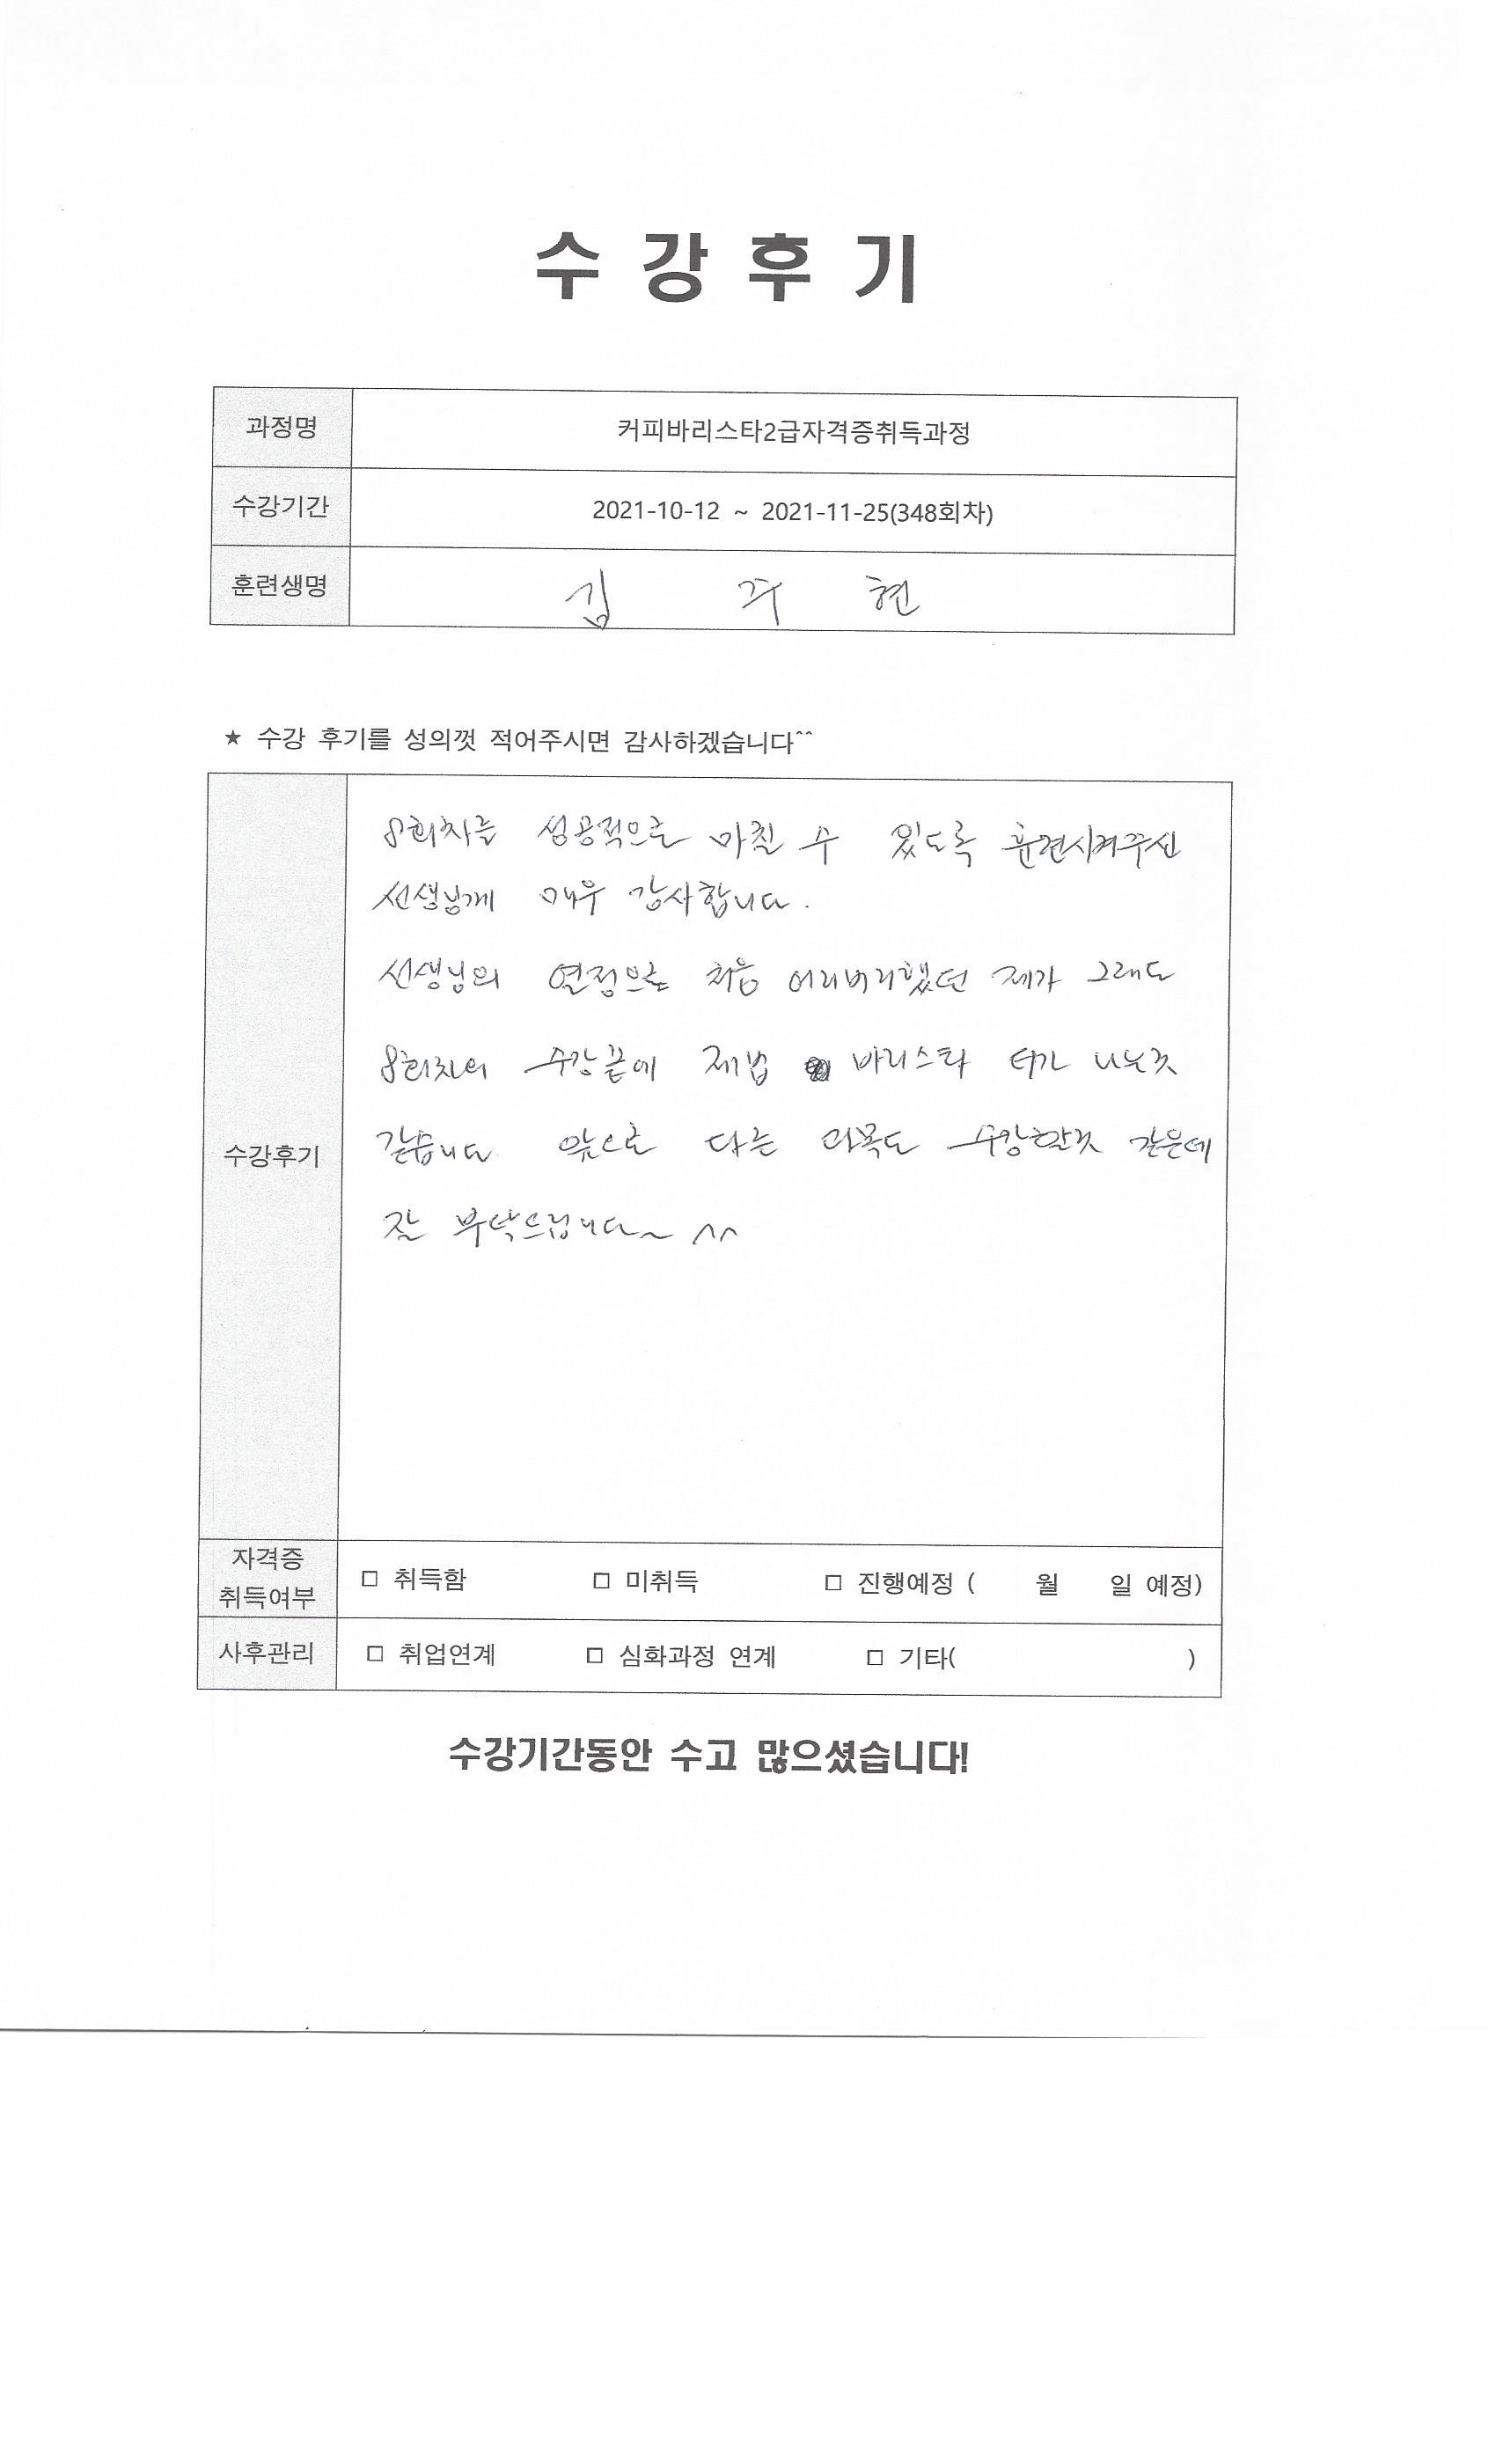 수 강 후 기
과정명 커피바리스타2급자격증취득과정
수강기간 2021-10-12 ~ 2021-11-25(348회차)
훈련생명 김 주 현
★ 수강 후기를 성의껏 적어주시면 감사하겠습니다^^
수강후기
8회차를 성공적으로 마칠 수 있도록 훈련시켜주신
선생님께 매우 감사합니다.
선생님의 열정으로 처음 어리버리했던 제가 그래도
8회차의 수강끝에 제법 바리스타 티가 나는것
같습니다. 앞으로 다른 과목도 수강할것 같은데
잘 부탁드립니다~ ^^
자격증 취득여부 □ 취득함 □ 미취득 □ 진행예정 ( 월 일 예정)
사후관리 □ 취업연계 □ 심화과정 연계 □ 기타( )
수강기간동안 수고 많으셨습니다!